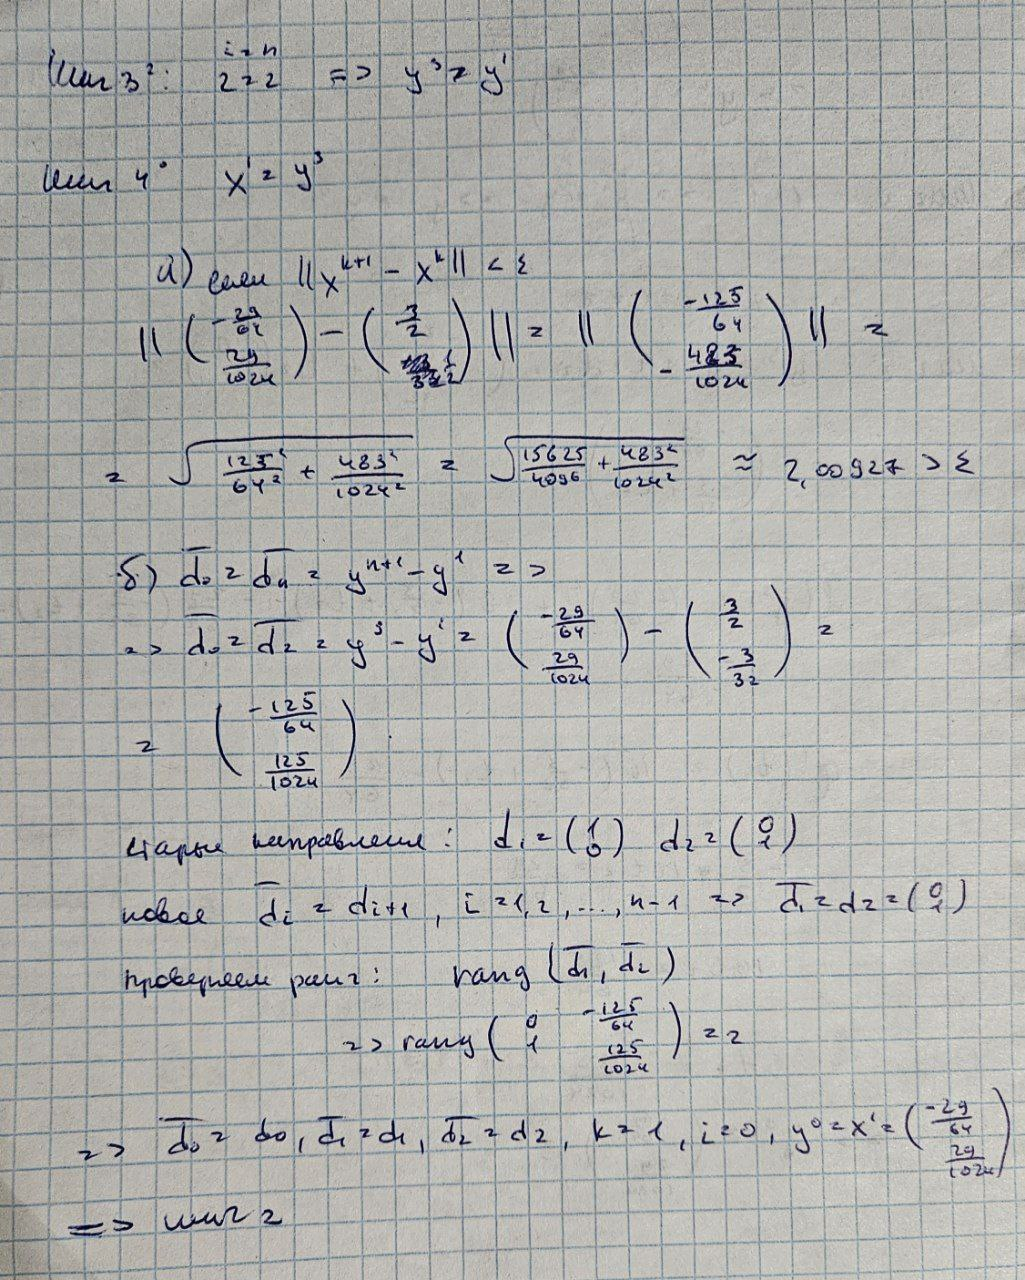 i = n
Шаг 3°: 2 = 2 => y³ ≠ y¹
Шаг 4° x¹ = y³
а) если ||x^{k+1} - x^k|| < ε
|| (-29/64; 29/1024) - (3/2; 1/2) || = || (-125/64; -483/1024) || =
= √(125²/64² + 483²/1024²) = √(15625/4096 + 483²/1024²) ≈ 2,00927 > ε
б) d̄₀ = d̄ₙ = y^{n+1} - y¹ =>
=> d̄₀ = d̄₂ = y³ - y¹ = (-29/64; 29/1024) - (3/2; -3/32) =
= (-125/64; 125/1024)
старые направления: d₁ = (1; 0) d₂ = (0; 1)
новое d̄ᵢ = dᵢ₊₁, i = 1, 2, ..., n-1 => d̄₁ = d₂ = (0; 1)
проверяем ранг: rang (d̄₁, d̄₂)
=> rang (0 -125/64; 1 125/1024) = 2
=> d̄₀ = d₀, d̄₁ = d₁, d̄₂ = d₂, k = 1, i = 0, y⁰ = x¹ = (-29/64; 29/1024)
=> шаг 2